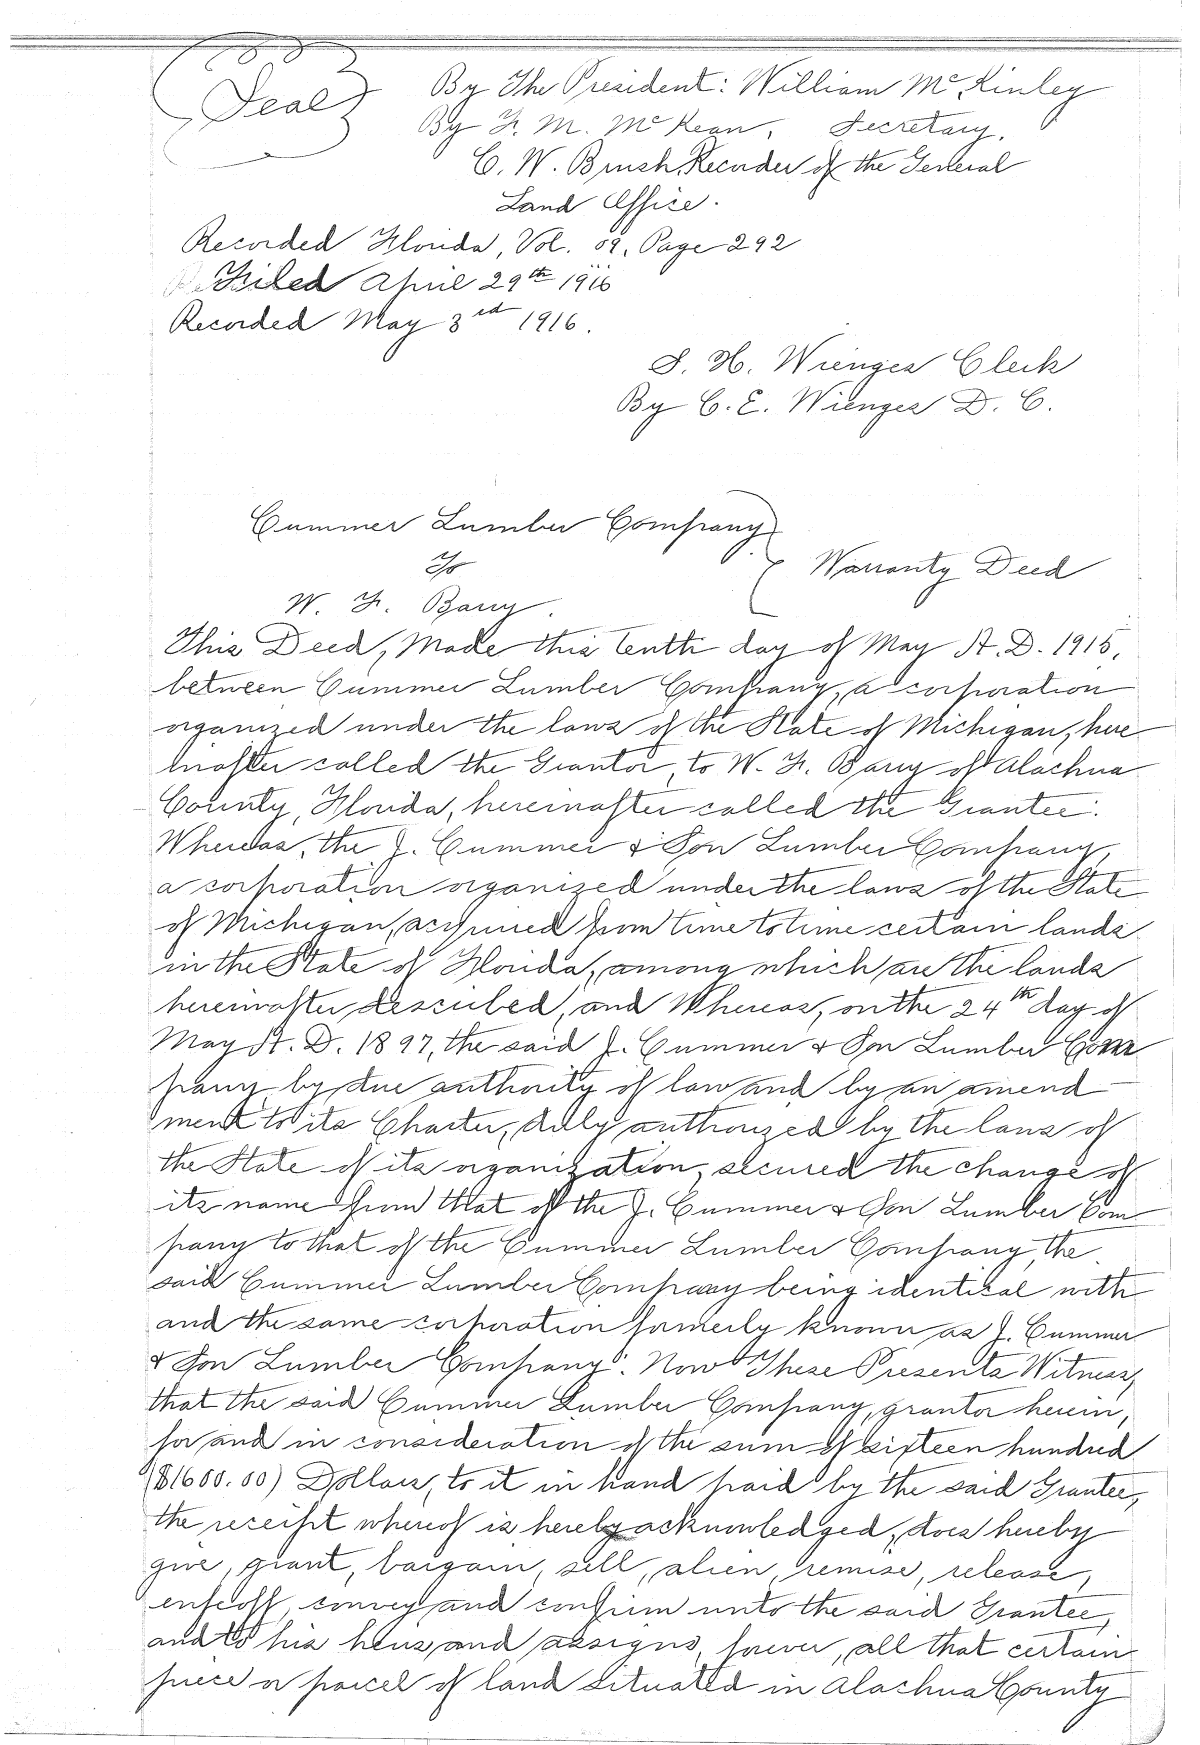 Seal
By The President: William McKinley
By F. M. McKean, Secretary.
C. W. Brush, Recorder of the General
Land Office.
Recorded Florida, Vol. 09, Page 292
Filed April 29th 1916
Recorded May 3rd 1916.
S. H. Wienges Clerk
By C. E. Wienges D. C.
Cummer Lumber Company
To
W. F. Barry.
Warranty Deed
This Deed, Made this tenth day of May A. D. 1915,
between Cummer Lumber Company, a corporation
organized under the laws of the State of Michigan, here
inafter called the Grantor, to W. F. Barry of Alachua
County, Florida, hereinafter called the Grantee:
Whereas, the J. Cummer & Son Lumber Company,
a corporation organized under the laws of the State
of Michigan, acquired from time to time certain lands
in the State of Florida, among which are the lands
hereinafter described, and Whereas, on the 24th day of
May A. D. 1897, the said J. Cummer & Son Lumber Com
pany, by due authority of law and by an amend
ment to its Charter, duly authorized by the laws of
the State of its organization, secured the change of
its name from that of the J. Cummer & Son Lumber Com
pany to that of the Cummer Lumber Company, the
said Cummer Lumber Company being identical with
and the same corporation formerly known as J. Cummer
& Son Lumber Company: Now These Presents Witness,
that the said Cummer Lumber Company, grantor herein,
for and in consideration of the sum of sixteen hundred
($1600.00) Dollars, to it in hand paid by the said Grantee,
the receipt whereof is hereby acknowledged, does hereby
give, grant, bargain, sell, alien, remise, release,
enfeoff, convey and confirm unto the said Grantee,
and to his heirs and assigns, forever, all that certain
piece or parcel of land situated in Alachua County